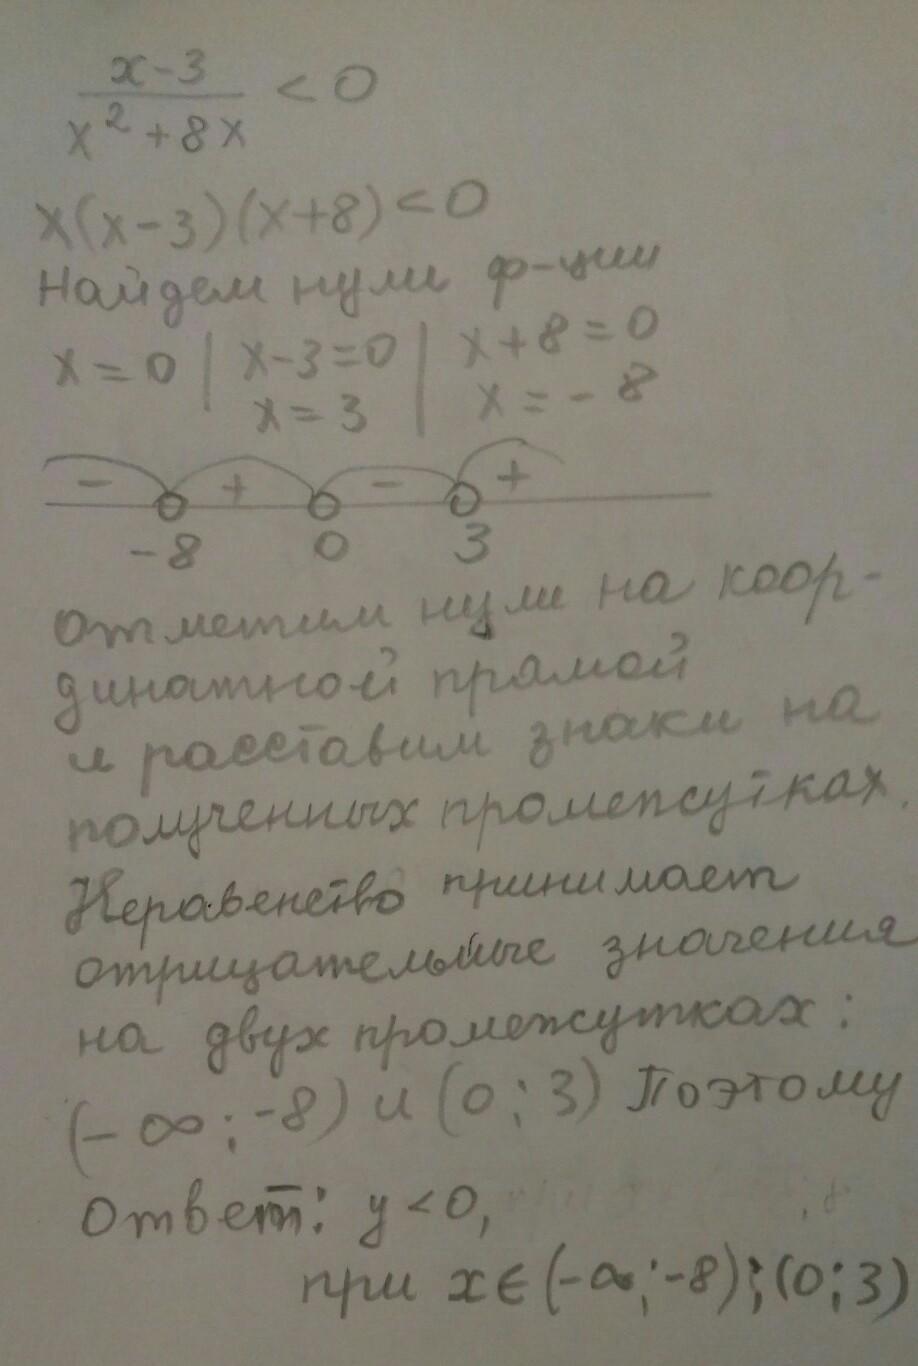 x-3
─── < 0
x² + 8x
x(x-3)(x+8)<0
Найдем нули ф-ции
x = 0 | x-3=0 | x+8=0
x = 3 | x = -8
- + - +
-8 0 3
Отметим нули на коор-
динатной прямой
и расставим знаки на
полученных промежутках.
Неравенство принимает
отрицательные значения
на двух промежутках:
(-∞;-8) и (0;3) Поэтому
Ответ: y<0,
при x∈(-∞;-8);(0;3)